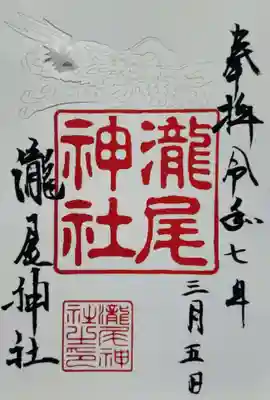 奉拝令和七年
三月五日
瀧尾
神社
瀧尾神
社之印
瀧尾神社